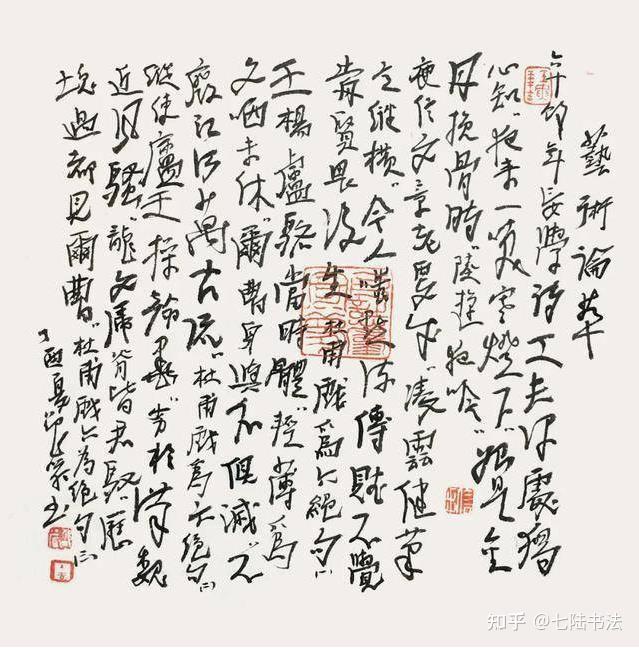 藝術論
六十余年妄學詩工夫深處獨
心知"夜來一笑寒燈下"始是金
丹換骨時"陸游夜吟"
庾信文章老更成"凌雲健筆
意縱橫"今人嗤點流傳賦不覺
前賢畏後生杜甫戲為六絕句(一)
王楊盧駱當時體"輕薄為
文哂未休"爾曹身與名俱滅"不
廢江河萬古流"杜甫戲為六絕句(二)
縱使盧王操翰墨"劣於漢魏
近風騷"龍文虎脊皆君馭"歷
塊過都見爾曹"杜甫戲六為絕句(三)
丁酉夏书
知乎 @七陆书法